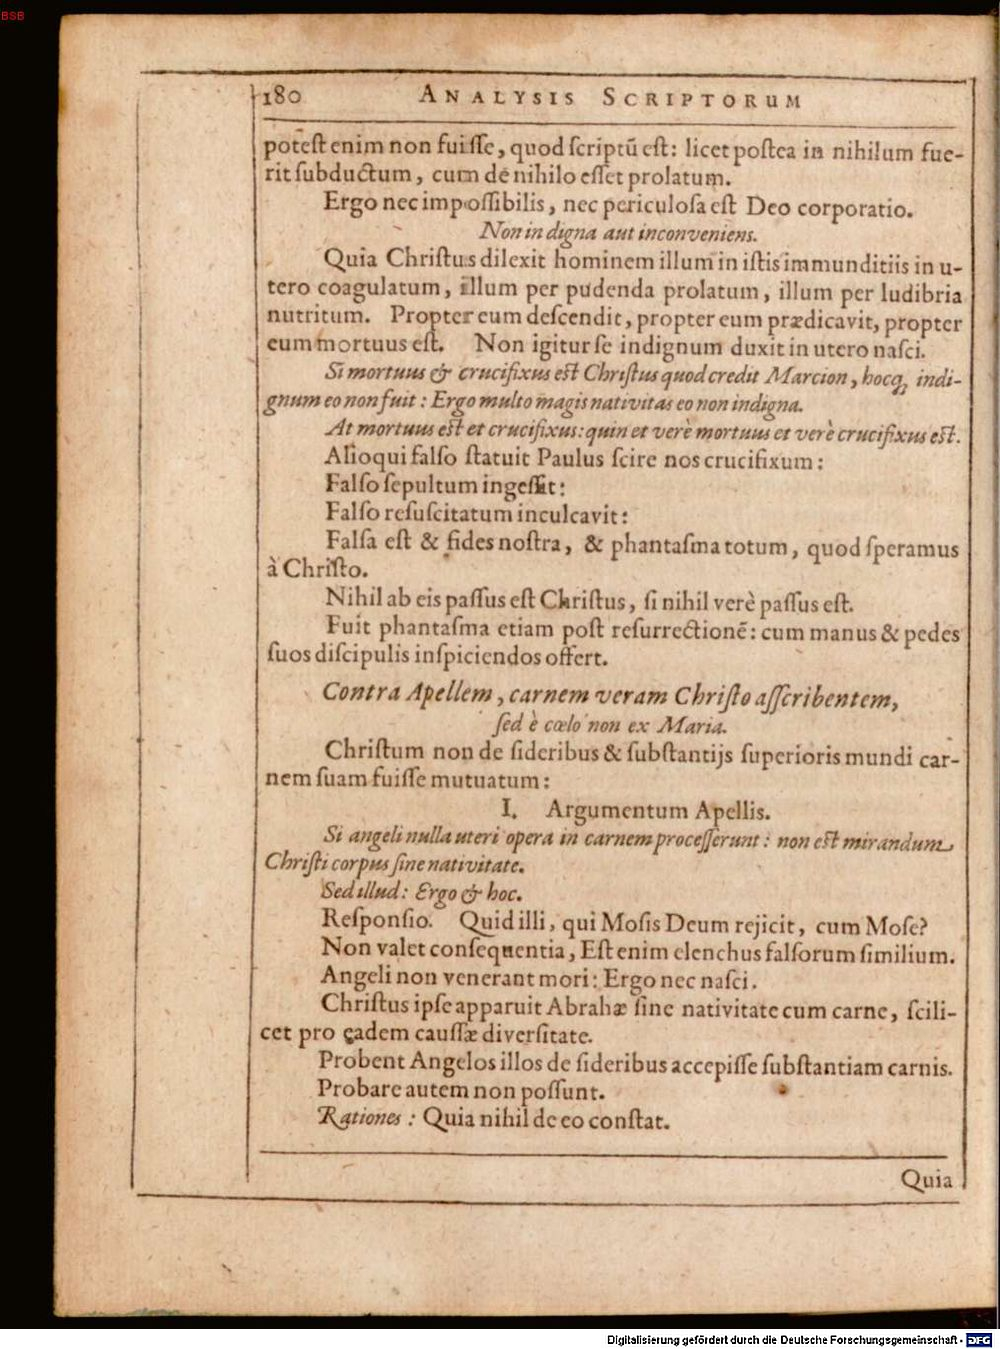 BSB
180 ANALYSIS SCRIPTORUM
potest enim non fuisse, quod scriptū est: licet postea in nihilum fue-
rit subductum, cum de nihilo esset prolatum.
Ergo nec impossibilis, nec periculosa est Deo corporatio.
Non indigna aut inconveniens.
Quia Christus dilexit hominem illum in istis immunditiis in u-
tero coagulatum, illum per pudenda prolatum, illum per ludibria
nutritum. Propter eum descendit, propter eum prædicavit, propter
eum mortuus est. Non igitur se indignum duxit in utero nasci.
Si mortuus & crucifixus est Christus quod credit Marcion, hocq, indi-
gnum eo non fuit: Ergo multo magis nativitas eo non indigna.
At mortuus est et crucifixus: quin et verè mortuus et verè crucifixus est.
Alioqui falso statuit Paulus scire nos crucifixum:
Falso sepultum ingessit:
Falso resuscitatum inculcavit:
Falsa est & fides nostra, & phantasma totum, quod speramus
à Christo.
Nihil ab eis passus est Christus, si nihil verè passus est.
Fuit phantasma etiam post resurrectionē: cum manus & pedes
suos discipulis inspiciendos offert.
Contra Apellem, carnem veram Christo asscribentem,
sed è cœlo non ex Maria.
Christum non de sideribus & substantijs superioris mundi car-
nem suam fuisse mutuatum:
I. Argumentum Apellis.
Si angeli nulla uteri opera in carnem processerunt: non est mirandum
Christi corpus sine nativitate.
Sed illud: Ergo & hoc.
Responsio. Quid illi, qui Mosis Deum rejicit, cum Mose?
Non valet consequentia, Est enim elenchus falsorum similium.
Angeli non venerant mori: Ergo nec nasci.
Christus ipse apparuit Abrahæ sine nativitate cum carne, scili-
cet pro eadem caussæ diversitate.
Probent Angelos illos de sideribus accepisse substantiam carnis.
Probare autem non possunt.
Rationes: Quia nihil de eo constat.
Quia
Digitalisierung gefördert durch die Deutsche Forschungsgemeinschaft - DFG